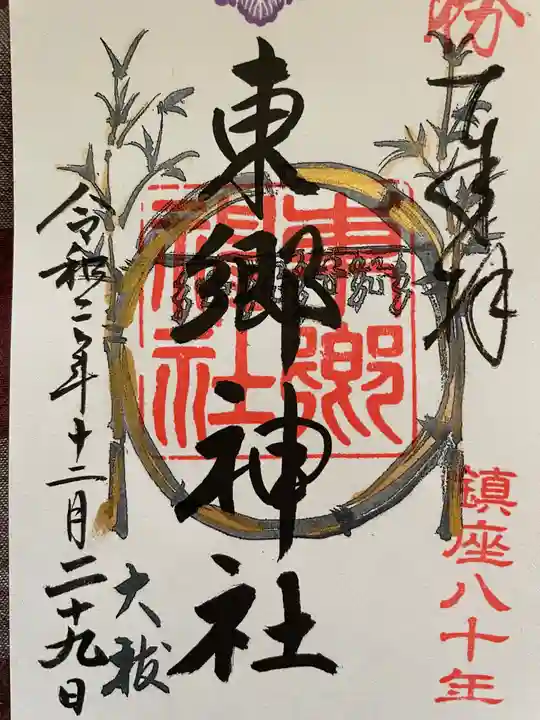 奉拝
鎮座八十年
東郷神社
東郷神社
令和二年十二月二十九日
大祓